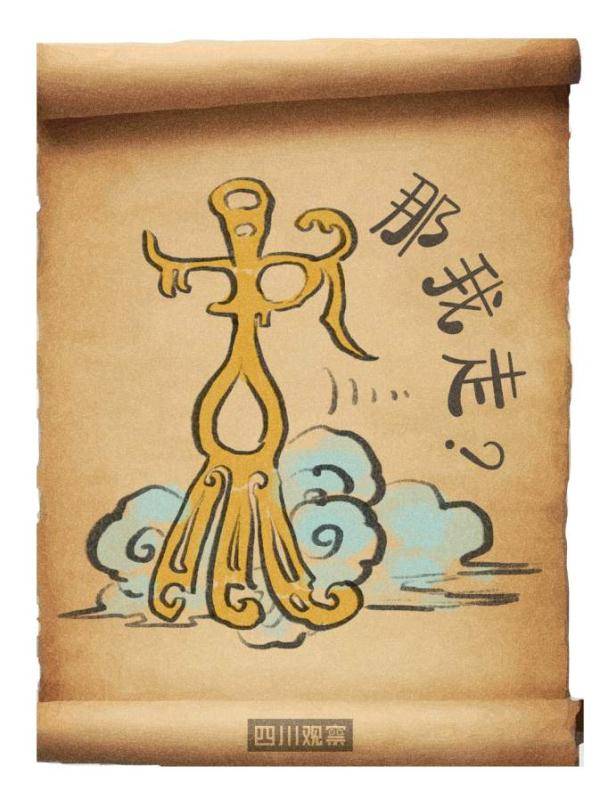 那我走?
四川观察